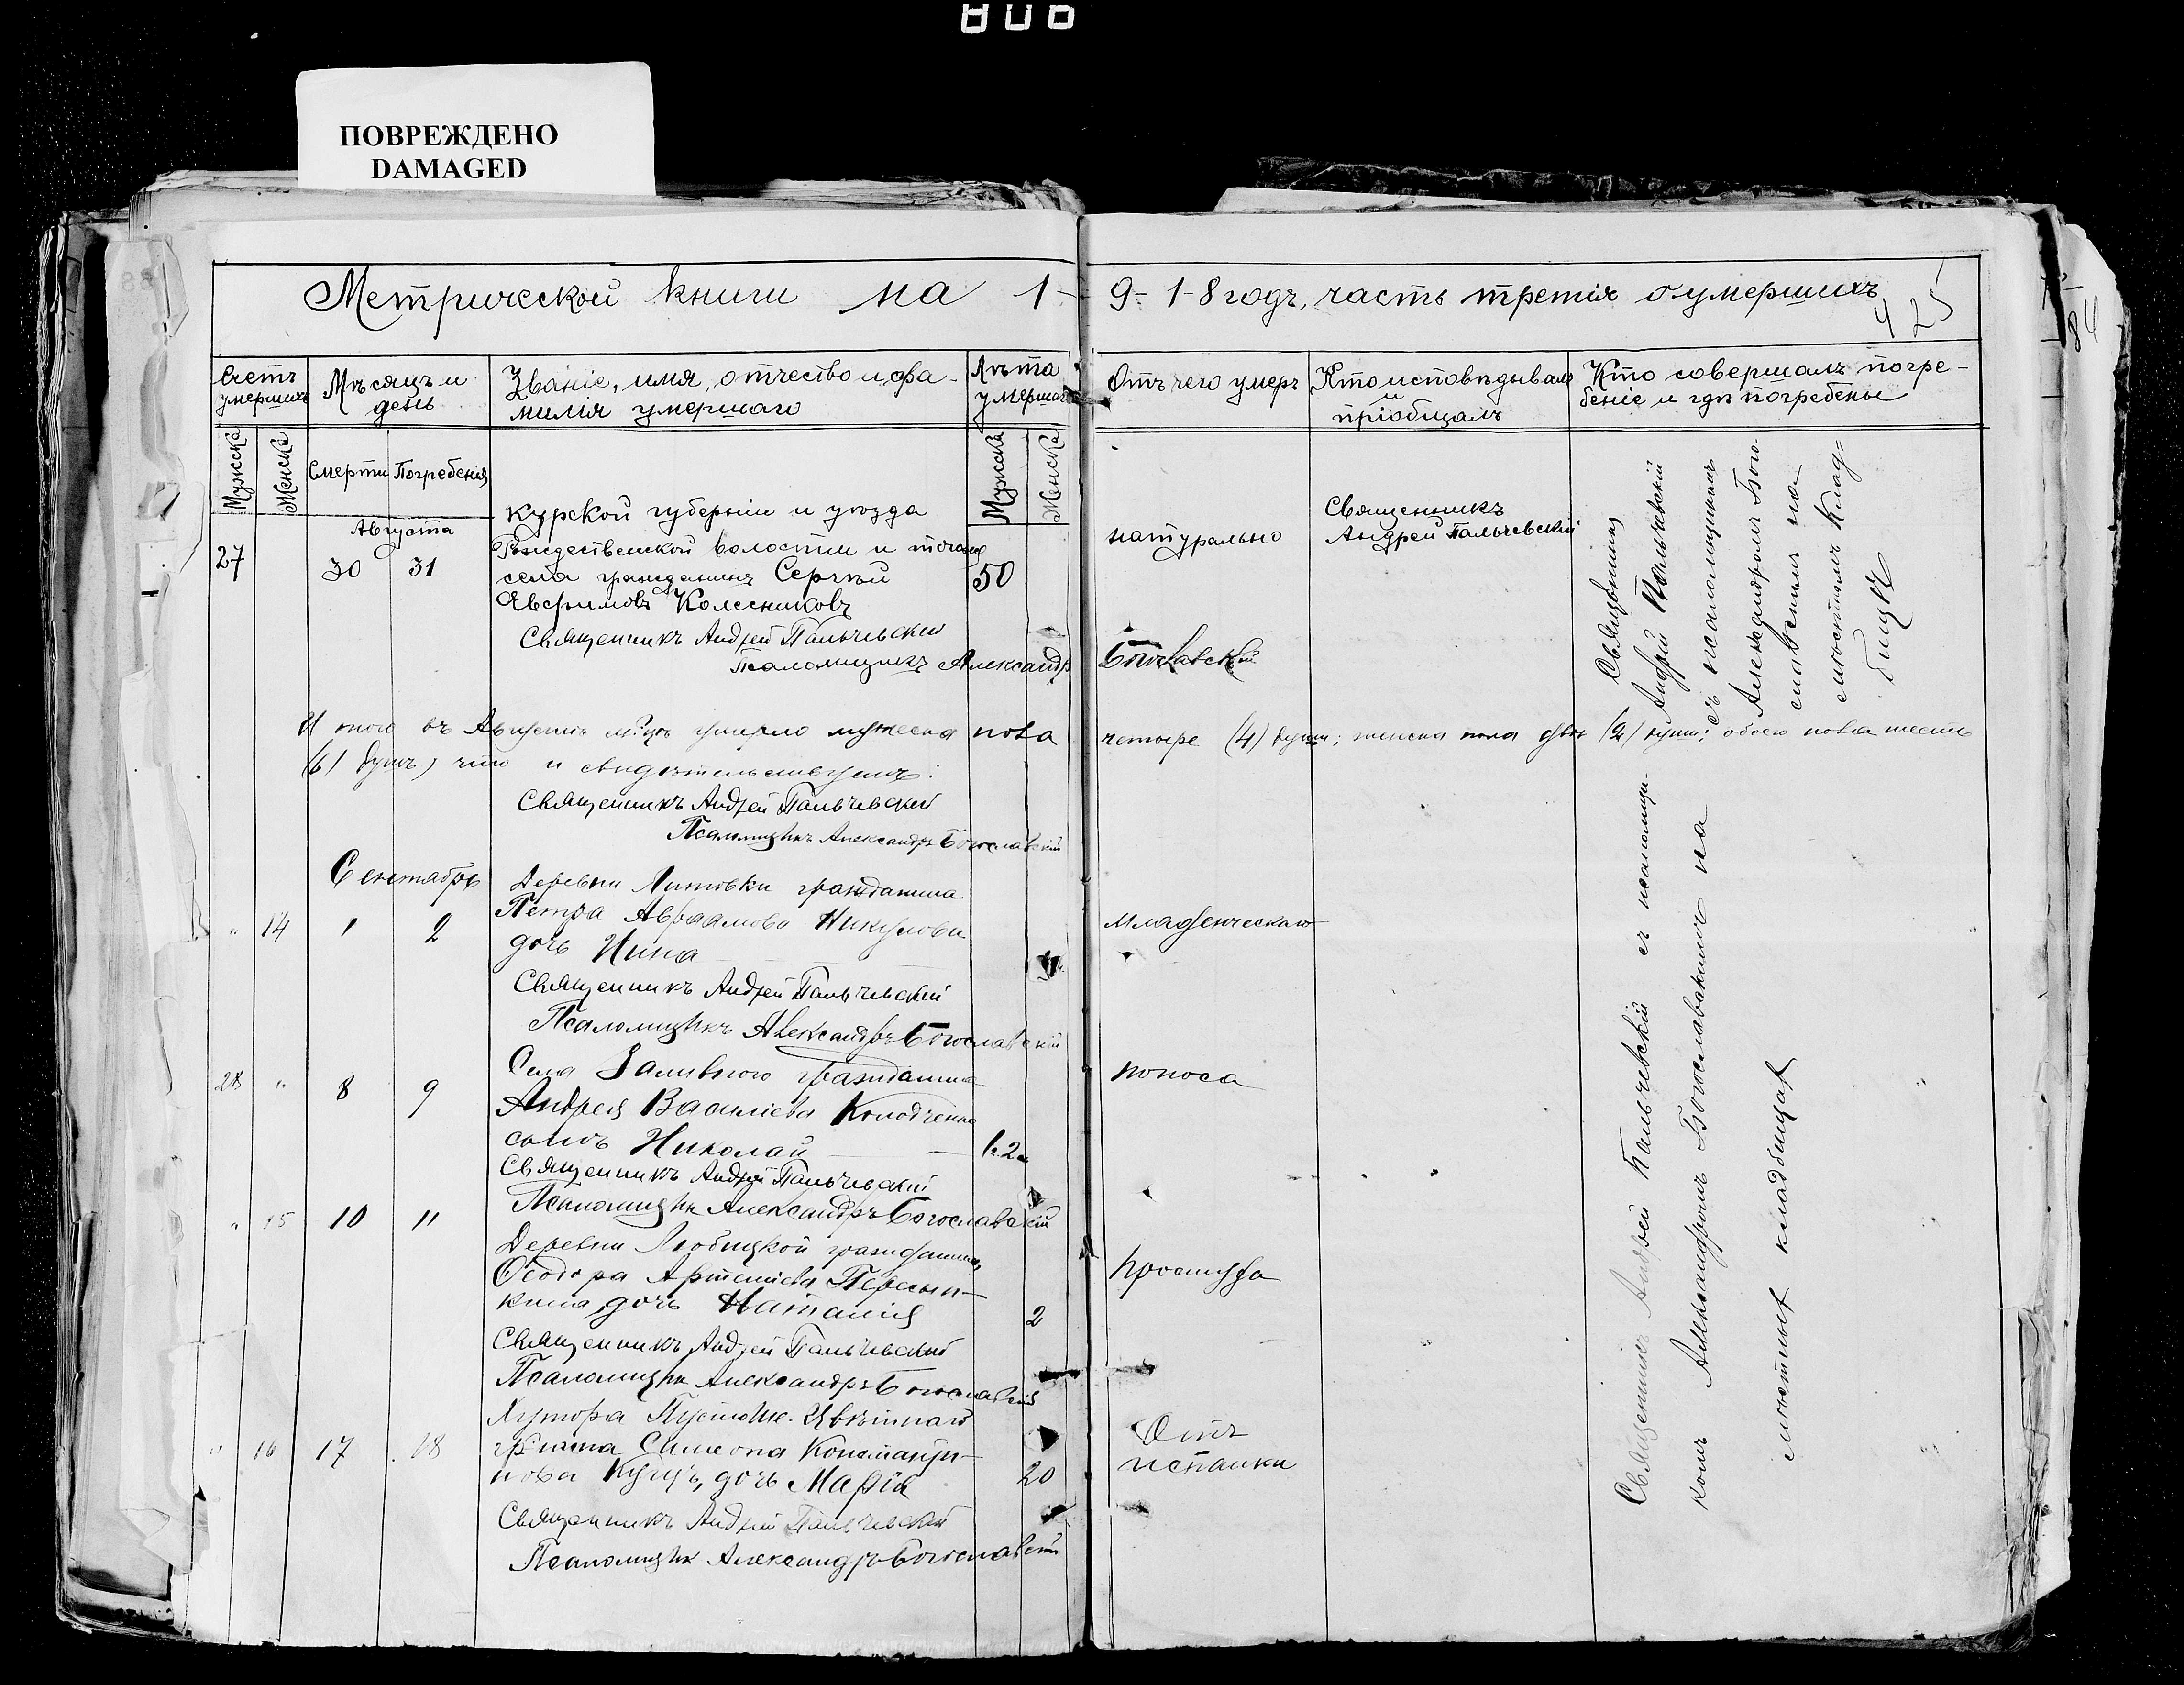 806
ПОВРЕЖДЕНО
DAMAGED
Метрической книги на 1-
9-1-8 годъ, часть третія о умершихъ
425
Счетъ умершихъ
Мѣсяцъ и день
Званіе, имя, отчество и фа-
милія умершаго
Лѣта умершаго
Отъ чего умеръ
Кто исповѣдывалъ
и
пріобщалъ
Кто совершалъ погре-
беніе и гдѣ погребены
Мужска
Женска
Смерти
Погребенія
Мужска
Женска
Августа
27
30
31
Курской губерніи и уѣзда
Рождественской волости и тогоже
села гражданинъ Сергѣй
Евфимовъ Колесниковъ
50
натурально
Священникъ
Андрей Пальчевскій
Священникъ
Андрей Пальчевскій
съ псаломщикомъ
Александромъ Бого-
славскимъ на
мѣстномъ клад=
бищѣ
Священникъ Андрей Пальчевскій
Псаломщикъ Александръ Богославскій
Итого въ Августѣ м-цѣ умерло мужеска пола четыре (4) души; женска пола двѣ (2) души; обоего пола шесть
(6) душъ, что и свидѣтельствуемъ:
Священникъ Андрей Пальчевскій
Псаломщикъ Александръ Богославскій
Сентябрь
"
14
1
2
Деревни Литовки гражданина
Петра Авраамова Никулова
дочь Нина
младенческаго
Священникъ Андрей Пальчевскій
Псаломщикъ Александръ Богославскій
28
"
8
9
Села Заливного гражданина
Андрея Василіева
сынъ Николай
поноса
Священникъ Андрей Пальчевскій
Псаломщикъ Александръ Богославскій
"
15
10
11
Деревни Любицкой гражданина
Ѳеодора Артеміева
кина, дочь Наталія
2
простуда
Священникъ Андрей Пальчевскій
Псаломщикъ Александръ Богославскій
"
16
17
18
Хутора
гр-нина Симеона Константи-
нова дочь Марія
20
Отъ
испанки
Священникъ Андрей Пальчевскій
Псаломщикъ Александръ Богославскій
Священникъ Андрей Пальчевскій съ псаломщи-
комъ Александромъ Богославскимъ на
мѣстномъ кладбищѣ
84